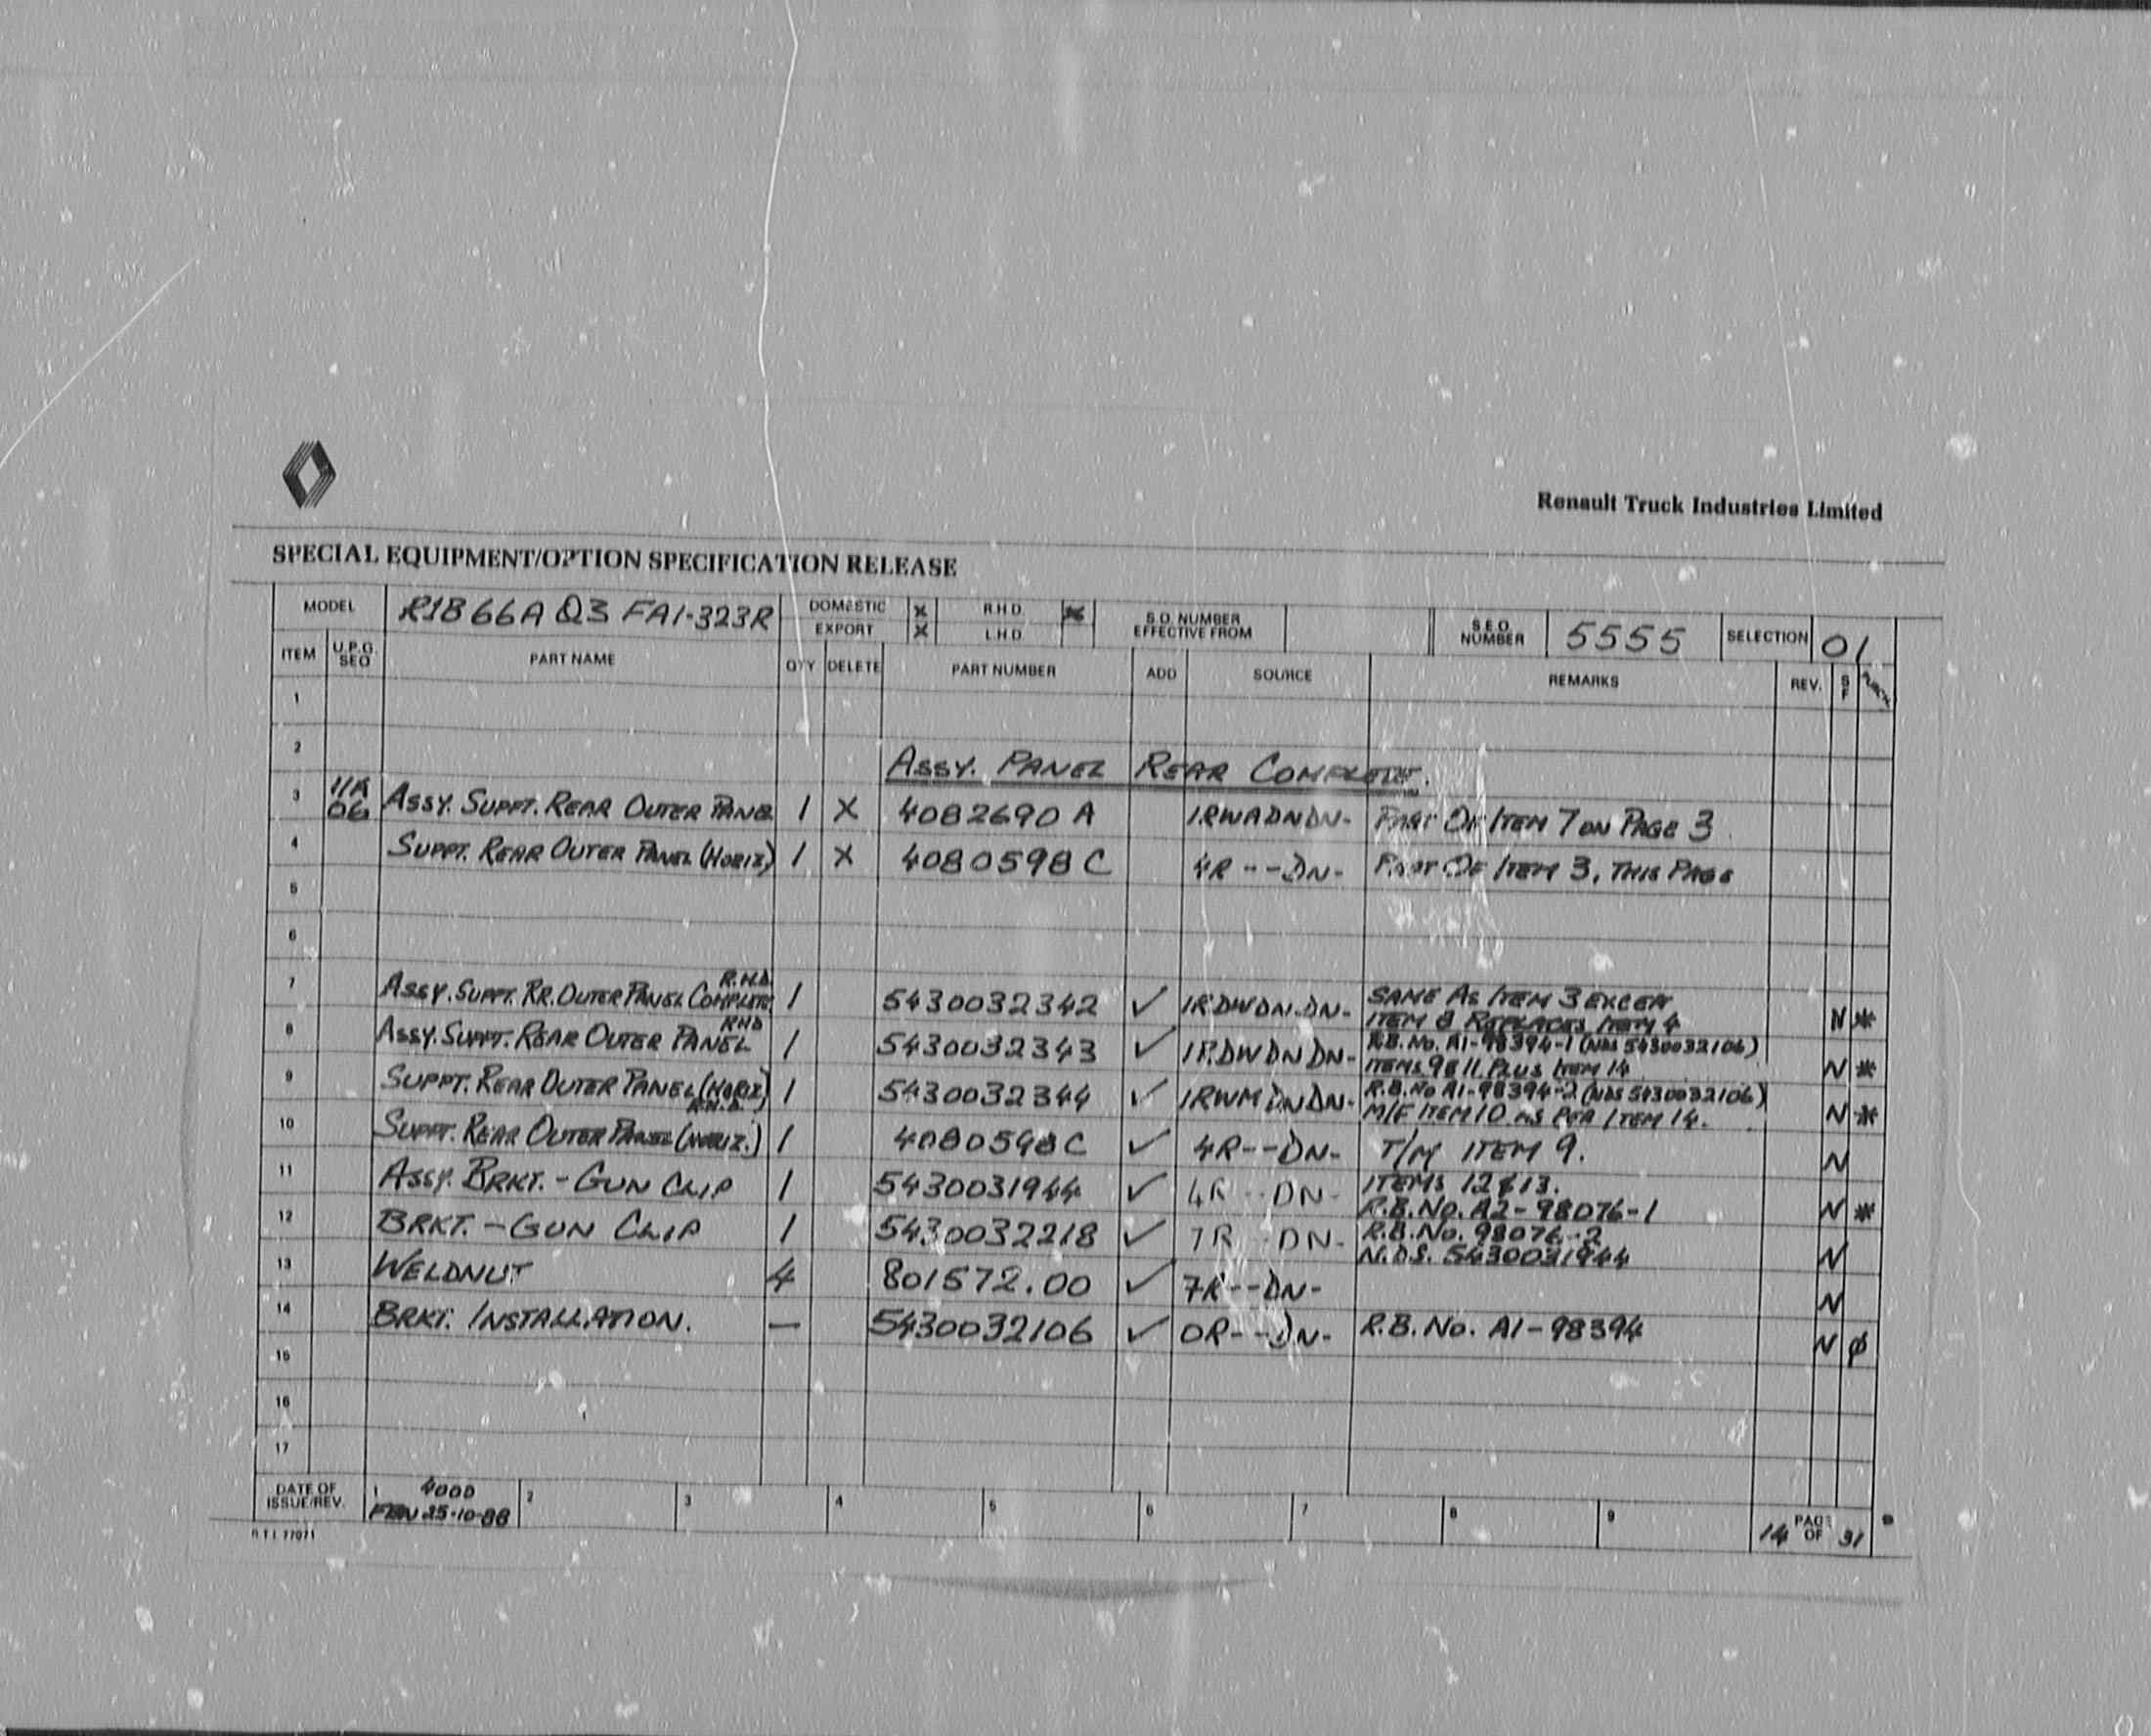 Renault Truck Industries Limited
SPECIAL EQUIPMENT/OPTION SPECIFICATION RELEASE
MODEL R1B66A Q3 FA1-323R DOMESTIC X R.H.D. X S.O. NUMBER EFFECTIVE FROM S.E.O. NUMBER 5555 SELECTION 01
EXPORT X L.H.D.
ITEM U.P.G. SEQ PART NAME QTY DELETE PART NUMBER ADD SOURCE REMARKS REV. S F
1
2 ASSY. PANEL REAR COMPLETE.
3 11A 06 ASSY. SUPPT. REAR OUTER PANEL 1 X 4082690 A 1RWADNDN- PART OF ITEM 7 ON PAGE 3
4 SUPPT. REAR OUTER PANEL (HORIZ) 1 X 4080598 C 4R---DN- PART OF ITEM 3, THIS PAGE
5
6
7 ASSY. SUPPT. RR. OUTER PANEL COMPLETE R.H.D. 1 5430032342 ✓ 1RDWDN-DN- SAME AS ITEM 3 EXCEPT
ITEM 8 REPLACES ITEM 4 N *
8 ASSY. SUPPT. REAR OUTER PANEL RHD 1 5430032343 ✓ 1RDWDNDN- R.B. No. A1-98394-1 (NDS 5430032106)
ITEMS 9 & 11 PLUS ITEM 14 N *
9 SUPPT. REAR OUTER PANEL (HORIZ) R.H.D. 1 5430032344 ✓ 1RWMDNDN- R.B. No A1-98394-2 (NDS 5430032106)
M/F ITEM 10 AS PER ITEM 14. N *
10 SUPPT. REAR OUTER PANEL (HORIZ.) 1 4080598C ✓ 4R--DN- T/M ITEM 9. N
11 ASSY. BRKT. - GUN CLIP 1 5430031944 ✓ 4R--DN- ITEMS 12 & 13.
R.B. No. A2-98076-1 N *
12 BRKT. - GUN CLIP 1 5430032218 ✓ 7R--DN- R.B. No. 98076-2
N.D.S. 5430031944 N
13 WELDNUT 4 801572.00 ✓ 7R--DN- N
14 BRKT. INSTALLATION. — 5430032106 ✓ 0R--DN- R.B. No. A1-98394 N ϕ
15
16
17
DATE OF ISSUE/REV. 1 4000 25-10-88 2 3 4 5 6 7 8 9 14 PAGE OF 31
R.T.I. 77071